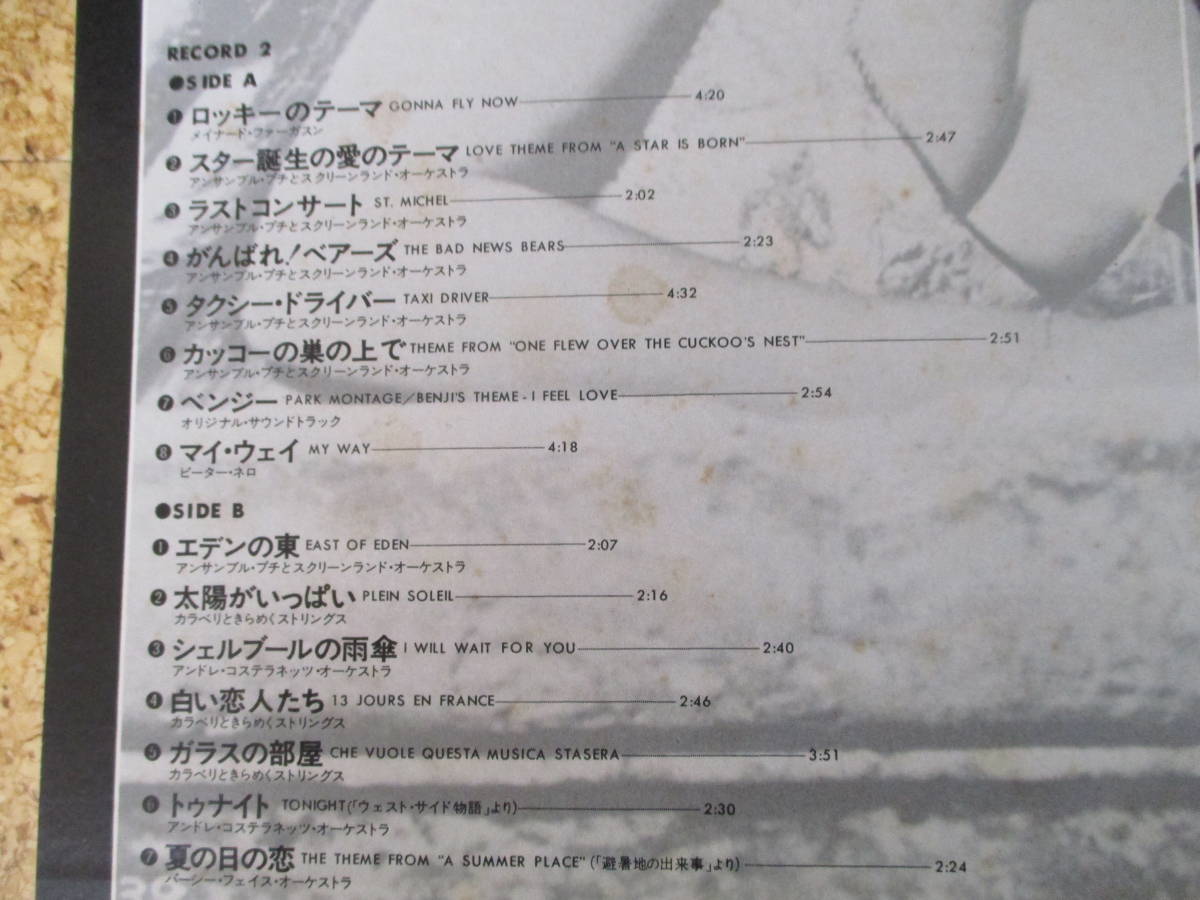 RECORD 2
●SIDE A
❶ ロッキーのテーマ GONNA FLY NOW 4:20
メイナード・ファーガスン
❷ スター誕生の愛のテーマ LOVE THEME FROM "A STAR IS BORN" 2:47
アンサンブル・プチとスクリーンランド・オーケストラ
❸ ラストコンサート ST. MICHEL 2:02
アンサンブル・プチとスクリーンランド・オーケストラ
❹ がんばれ!ベアーズ THE BAD NEWS BEARS 2:23
アンサンブル・プチとスクリーンランド・オーケストラ
❺ タクシー・ドライバー TAXI DRIVER 4:32
アンサンブル・プチとスクリーンランド・オーケストラ
❻ カッコーの巣の上で THEME FROM "ONE FLEW OVER THE CUCKOO'S NEST" 2:51
アンサンブル・プチとスクリーンランド・オーケストラ
❼ ベンジー PARK MONTAGE/BENJI'S THEME - I FEEL LOVE 2:54
オリジナル・サウンドトラック
❽ マイ・ウェイ MY WAY 4:18
ピーター・ネロ
●SIDE B
❶ エデンの東 EAST OF EDEN 2:07
アンサンブル・プチとスクリーンランド・オーケストラ
❷ 太陽がいっぱい PLEIN SOLEIL 2:16
カラベリときらめくストリングス
❸ シェルブールの雨傘 I WILL WAIT FOR YOU 2:40
アンドレ・コステラネッツ・オーケストラ
❹ 白い恋人たち 13 JOURS EN FRANCE 2:46
カラベリときらめくストリングス
❺ ガラスの部屋 CHE VUOLE QUESTA MUSICA STASERA 3:51
カラベリときらめくストリングス
❻ トゥナイト TONIGHT(「ウェスト・サイド物語」より) 2:30
アンドレ・コステラネッツ・オーケストラ
❼ 夏の日の恋 THE THEME FROM "A SUMMER PLACE" (「避暑地の出来事」より) 2:24
パーシー・フェイス・オーケストラ